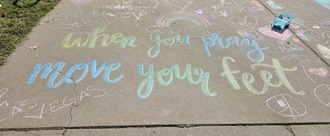 When you pray
move your feet
VEGAS